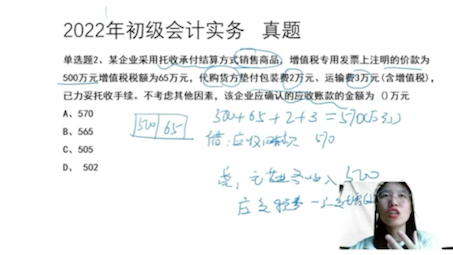 2022年初级会计实务 真题
单选题2、某企业采用托收承付结算方式销售商品，增值税专用发票上注明的价款为
500万元增值税税额为65万元，代购货方垫付包装费2万元、运输费3万元(含增值税)，
已办妥托收手续。不考虑其他因素，该企业应确认的应收账款的金额为 ()万元
A、570
B、565
C、505
D、 502
500 65
500+65+2+3=570(万元)
借:应收账款 570
贷:主营业务收入 500
应交税费